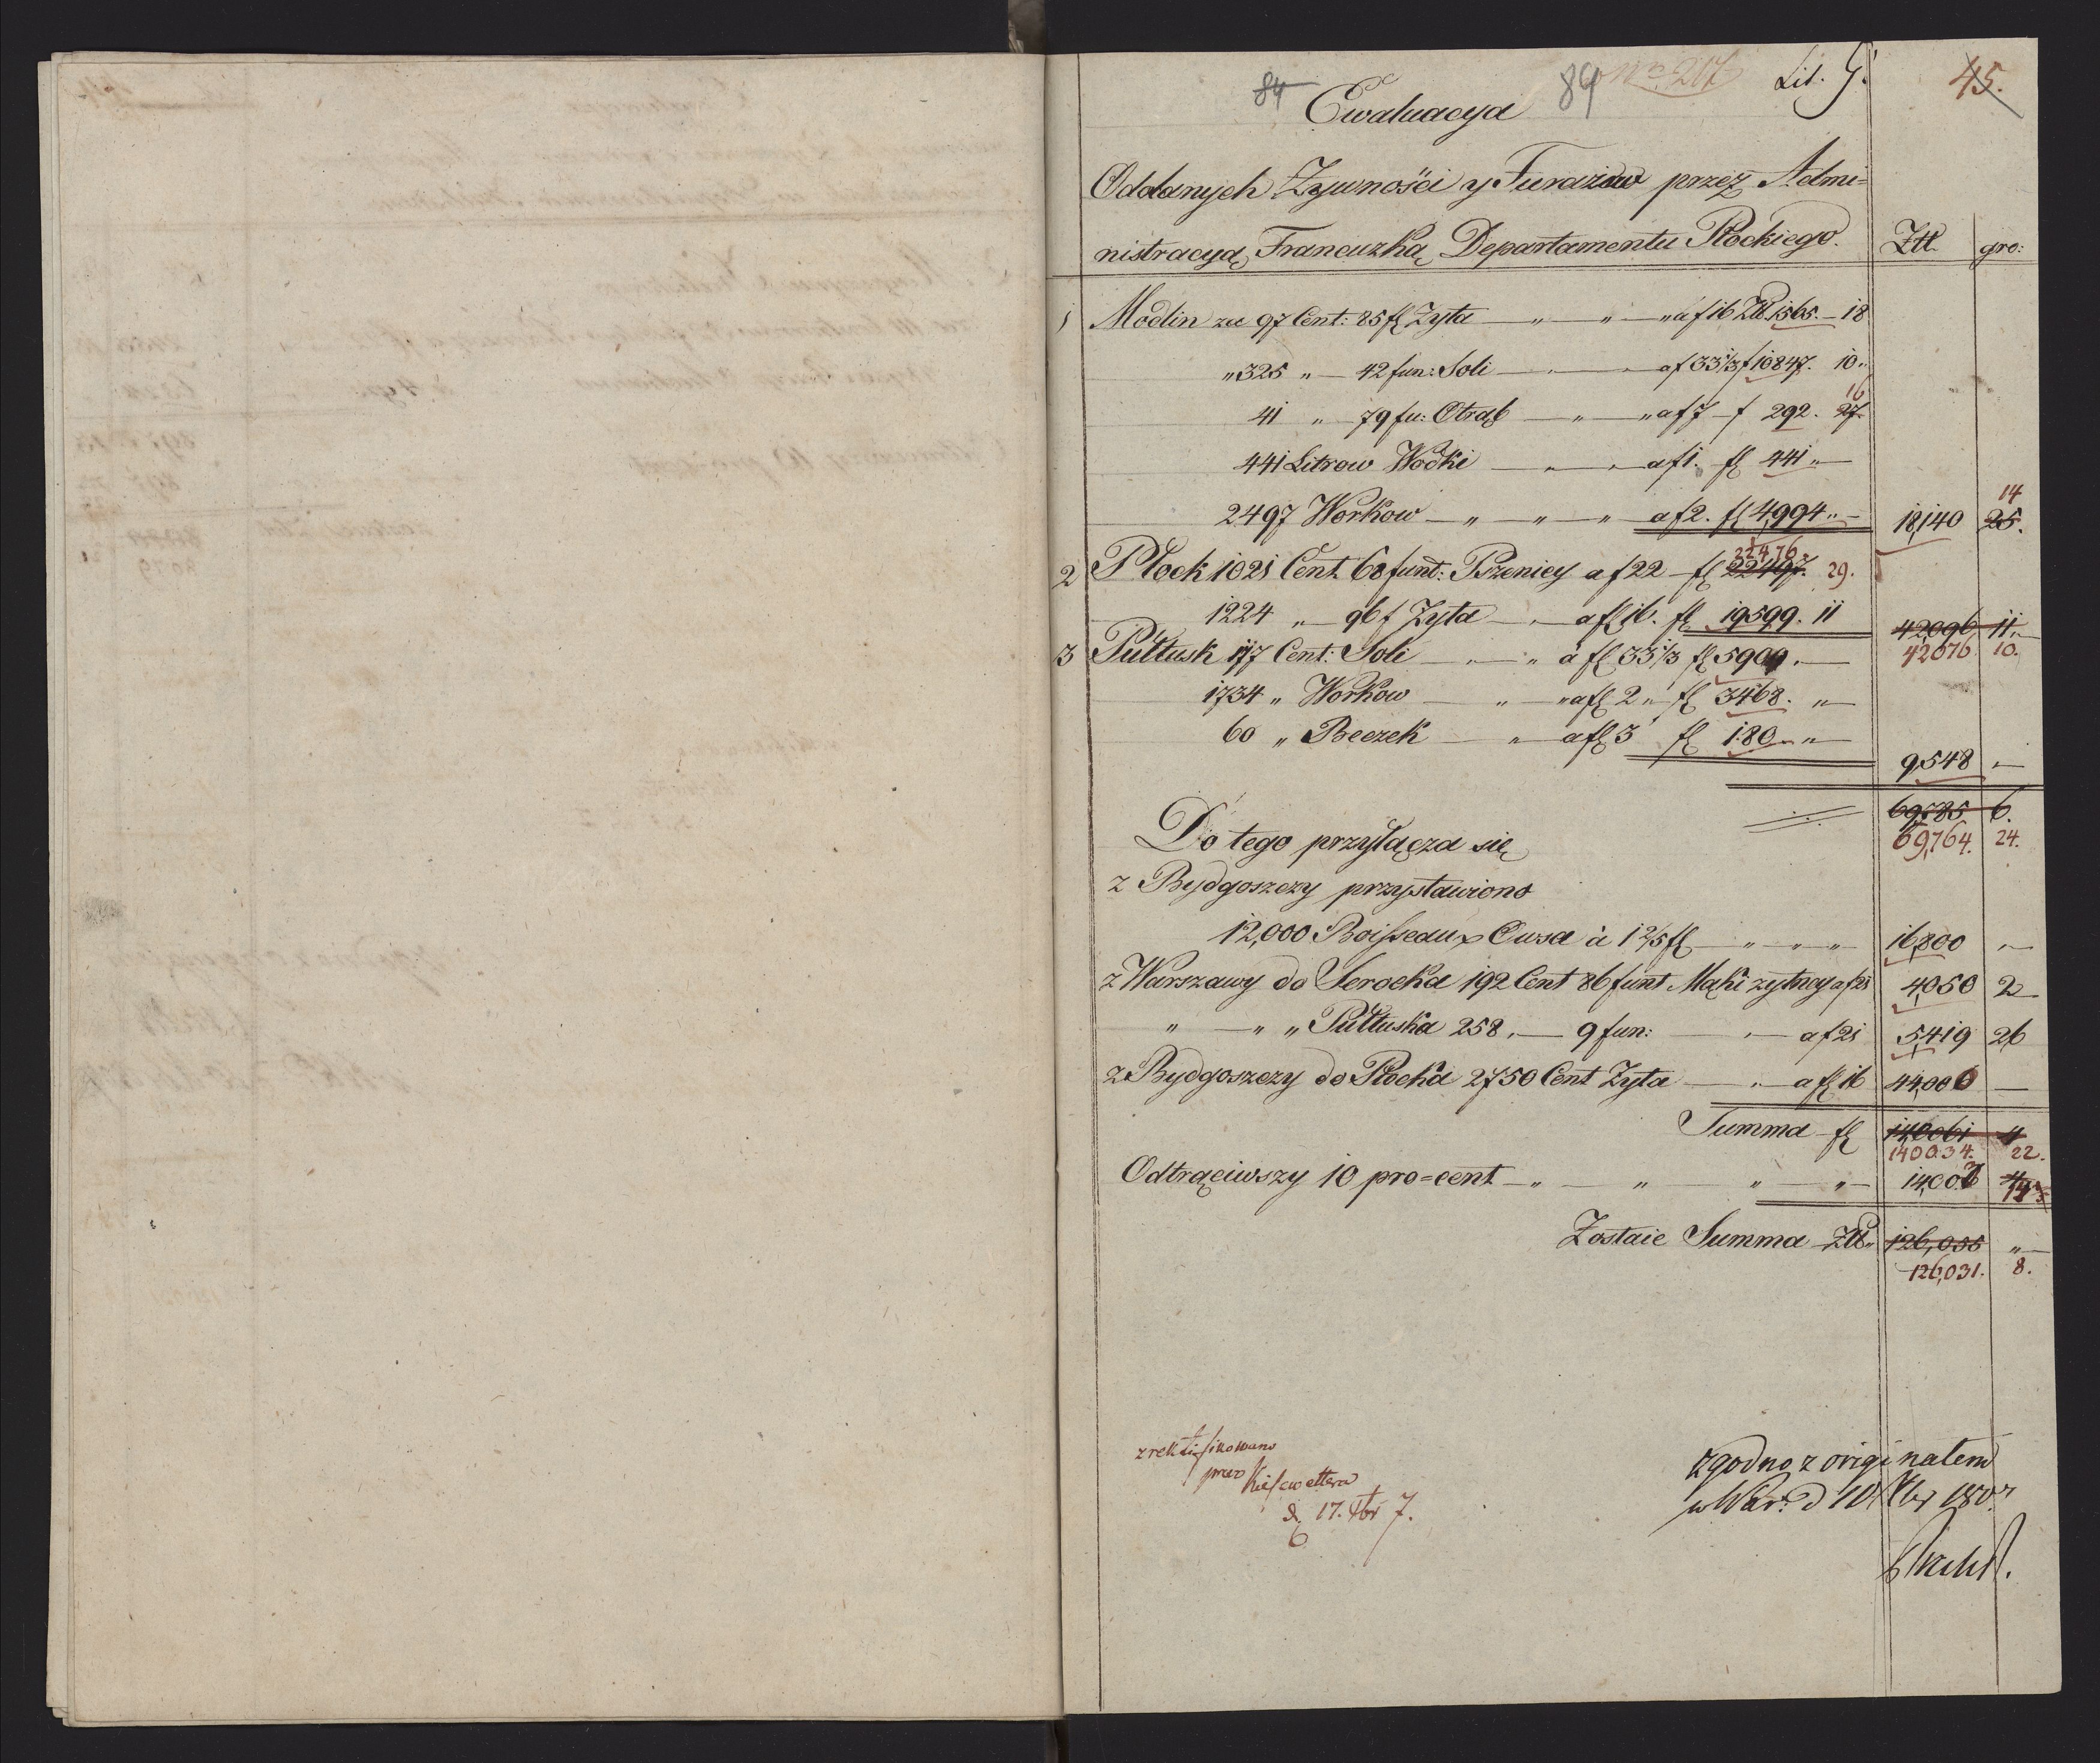 84 84 No 217 Lit. G. 45.
Ewaluacya
Oddanych Zywności y Furażow przez Admi=
nistracyą Francuzką Departamentu Płockiego. Złł. gro:
1 Modlin za 97 Cent: 85 fl Zyta — " — " — " a f 16 Złł. 1565. — 18
" 325 " — 42 fun: Soli — " — " a f 33 1/3 f 10847. 10 "
41 " 79 fu: Otrąb — " — " a f 7 — f 292. 27. 16
441 Litrow Wodki — " — " — a f 1. fl 441 " —
2497 Workow — " — " — " a f 2. fl 4,994 " — 18,140 25. 14
2 Płock 1021 Cent. 68 funt: Pszenicy a f 22 — fl 22497. 22476 29.
1224 " — 96 f Zyta — " — a fl 16. fl 19599. 11 42,096 11 "
42076. 10.
3 Pułtusk 177 Cent: Soli — " — " á fl 33 1/3 fl 5900. —
1734 " Workow — " — " a fl 2 " fl 3468. "
60 " Beczek — " — a fl 3 fl 180 — "
9,548 " —
69,785 6.
69,764. 24.
Do tego przyłącza się
z Bydgoszczy przystawiono
12,000 Boisseaux Owsa à 1 2/5 fl — " — " — " 16,800 " —
z Warszawy do Serocka 192 Cent 86 funt Mąki zytney a f 21 4,050 2
" — " " Pułtuska 258 " — 9 fun: — " — a f 21 5,419 26
z Bydgoszczy do Płocka 2750 Cent Zyta — " — a fl 16 44,000 —
Summa fl 140061 4
140034. 22.
Odtrąciwszy 10 pro=cent — " — " — " — " — 14,003 14
Zostaie Summa Złł. 126,055 " —
126,031. 8.
zrektifikowano
przez Kiesewettera
d. 17. Xbr 7.
zgodno z originałem
w War: d 10 Xbr 1807